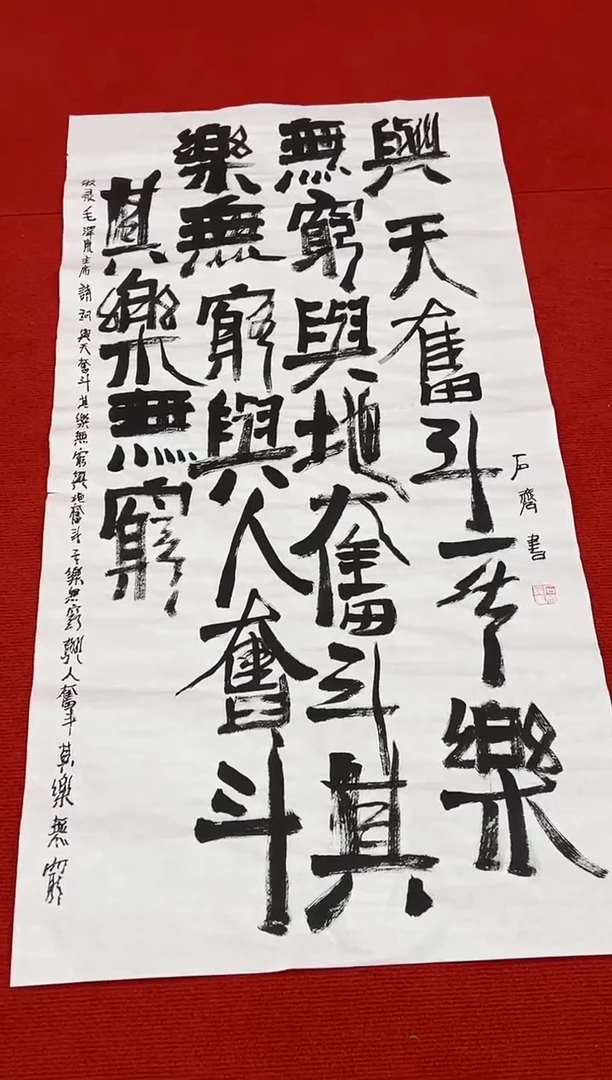 與天奮斗亓樂
無窮與地奮斗其
樂無窮與人奮斗
其樂無窮
石齊書
敬录毛澤東主席詩詞與天奮斗其樂無窮與地奮斗亓樂無窮與人奮斗其樂無窮